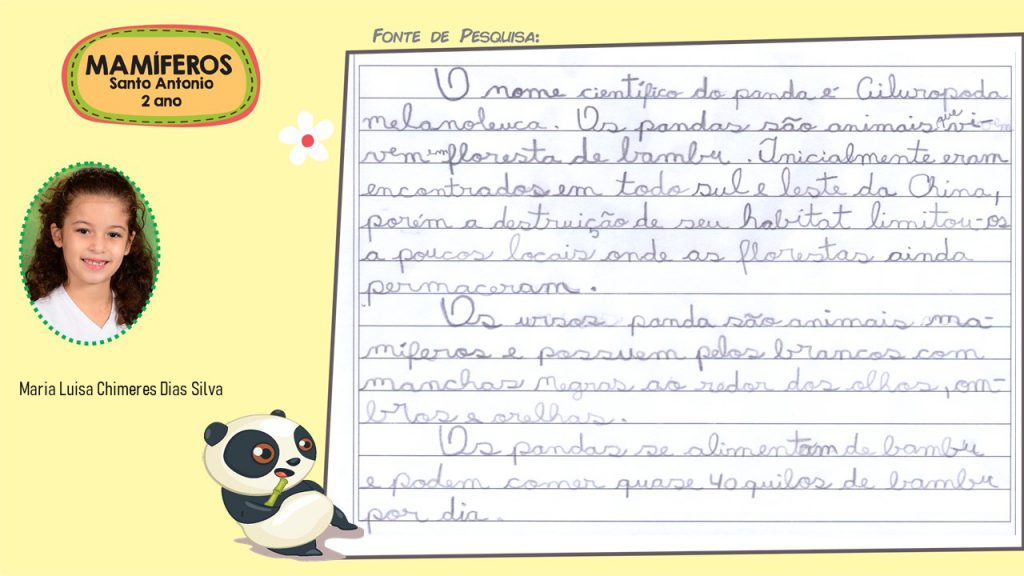 MAMÍFEROS
Santo Antonio
2 ano
FONTE DE PESQUISA:
O nome científico do panda é Ailuropoda
melanoleuca. Os pandas são animais que vi-
vem em floresta de bambu. Inicialmente eram
encontrados em todo sul e leste da China,
porém a destruição de seu habitat limitou-os
a poucos locais onde as florestas ainda
permaceram.
Os ursos panda são animais ma-
míferos e possuem pelos brancos com
manchas negras ao redor dos olhos, om-
bros e orelhas.
Os pandas se alimentam de bambu
e podem comer quase 40 quilos de bambu
por dia.
Maria Luisa Chimeres Dias Silva